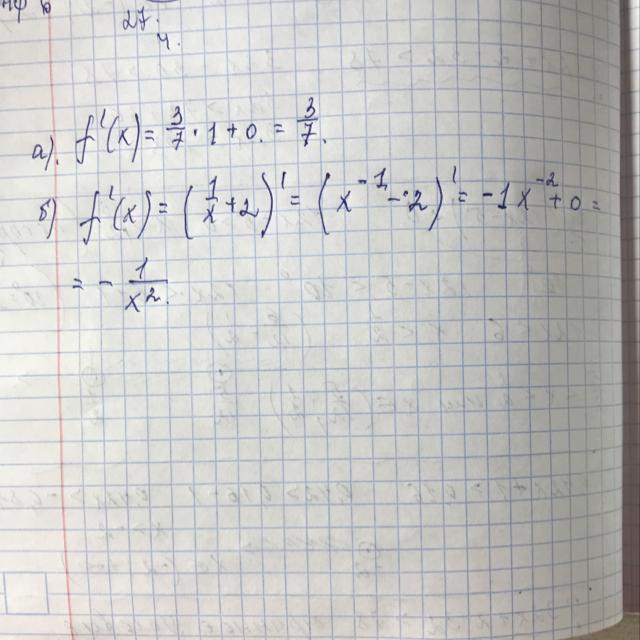 27.
4.
а). f'(x) = 3/7 · 1 + 0. = 3/7.
б) f'(x) = (1/x + 2)' = (x⁻¹ - 2)' = -1x⁻² + 0 =
= - 1/x².